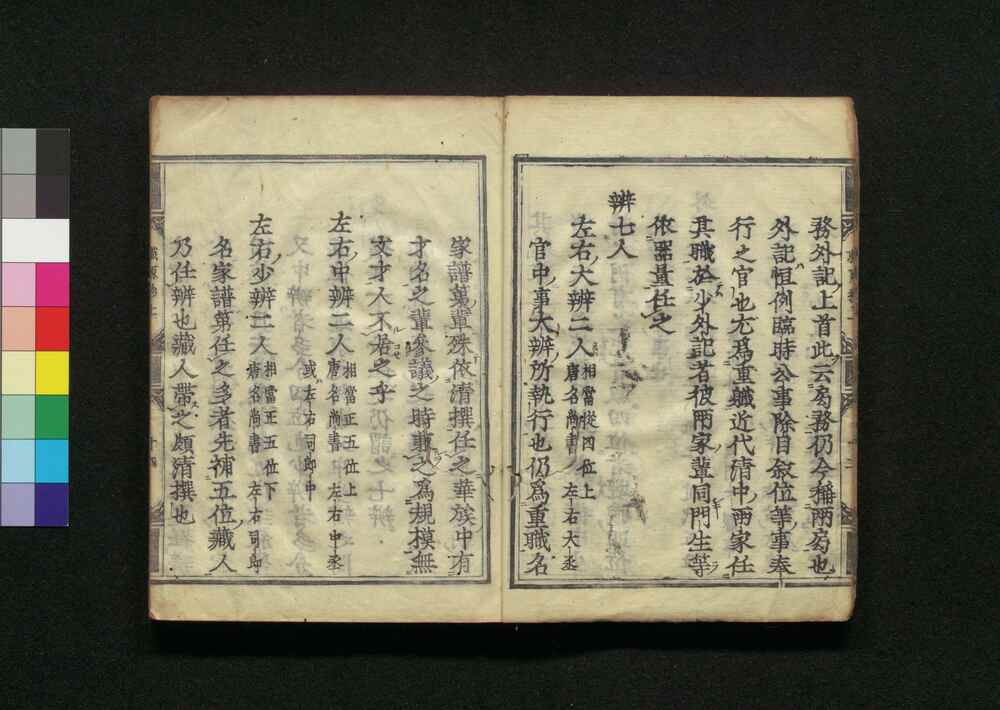 務外記上首此云局務仍今稱兩局也
外記恒例臨時公事除目敍位等事奉
行之官也尤爲重職近代清中兩家任
其職於少外記者彼兩家輩同門生等
依器量任之
辨七人
左右大辨二人相當從四位上
唐名尚書左右大丞
官中事大辨所執行也仍爲重職名
家譜第輩殊依清撰任之華族中有
才名之輩參議之時兼之爲規模無
文才人不居之乎
左右中辨二人相當正五位上
唐名尚書左右中丞
或左右司郎中
左右少辨二人相當正五位下
唐名尚書左右司郎
名家譜第任之多者先補五位藏人
乃任辨也藏人帶之頗清撰也